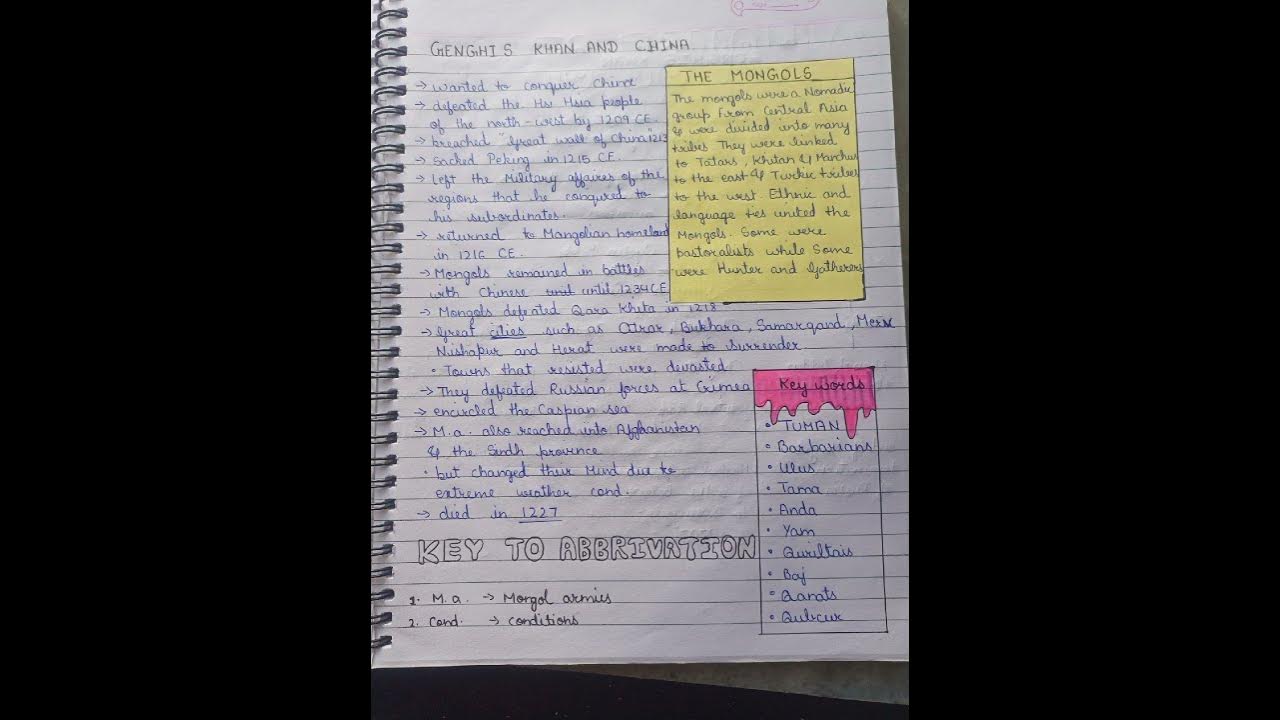 GENGHIS KHAN AND CHINA
→ wanted to conquer China
→ defeated the Hsi Hsia people
of the north-west by 1209 CE.
→ breached "Great wall of China" 1213
→ Sacked Peking in 1215 CE.
→ Left the Military affaires of the
regions that he conqured to
his subordinates.
→ returned to Mangolian homeland
in 1216 CE.
→ Mongols remained in battles
with Chinese until until 1234 CE
→ Mongols defeated Qara Khita in 1218
→ Great cities such as Otrar, Bukhara, Samarqand, Merv
Nishapur and Herat were made to surrender
• Towns that resisted were devasted
→ They defeated Russian forces at Crimea
→ encircled the Caspian sea
→ M.a. also reached into Afghanistan
& the Sindh province
• but changed their Mind due to
extreme weather cond.
→ died in 1227
THE MONGOLS
The mongols were a Nomadic
group From Central Asia
& were divided into many
tribes They were linked
to Tatars, Khitan & Manchus
to the east & Turkic tribes
to the west. Ethnic and
language ties united the
Mongols. Some were
pastoralists while Some
were Hunter and Gatherers
Key words
• TUMAN
• Barbarians
• Ulus
• Tama
• Anda
• Yam
• Quriltais
• Baj
• Qanats
• Qubcur
KEY TO ABBRIVATION
1. M.a. → Mongol armies
2. Cond. → conditions